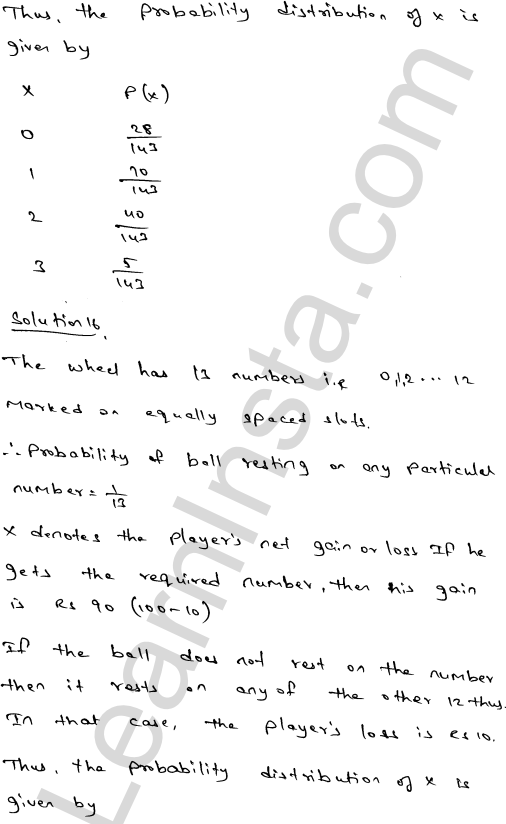 Thus, the Probability distribution of x is
given by
X P(x)
0 28/143
1 70/143
2 40/143
3 5/143
Solution 16.
The wheel has 13 numbers i.e 0,1,2... 12
Marked on equally spaced slots.
∴ Probability of ball resting on any Particular
number = 1/13
X denotes the Player's net gain or loss If he
gets the required number, then his gain
is Rs 90 (100-10)
If the ball does not rest on the number
then it rests on any of the other 12 thus.
In that case, the Player's loss is Rs 10.
Thus, the Probability distribution of X is
given by
LearnInsta.com